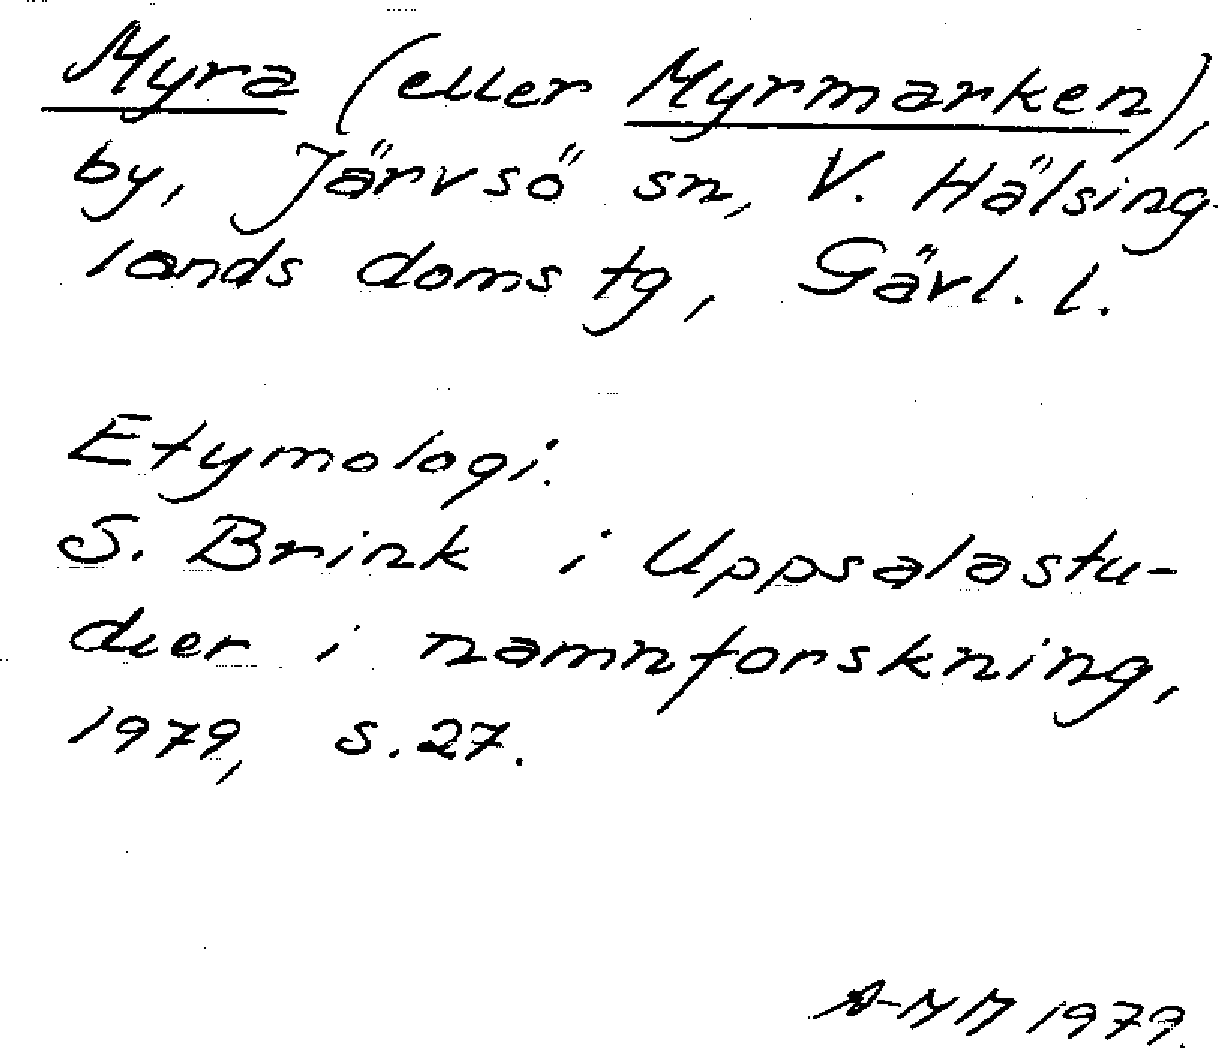 Myra (eller Myrmarken),
by, Järvsö sn, V. Hälsing-
lands doms tg, Gävl. l.
Etymologi.
S. Brink i Uppsalastu-
dier i namnforskning,
1979, s. 27.
A-MM 1979.